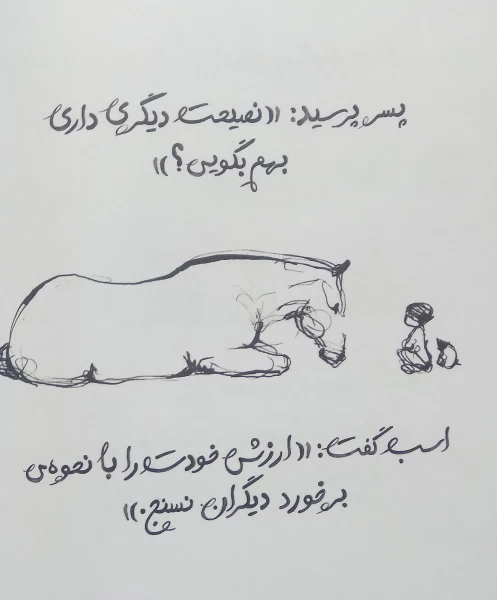 پسر پرسید: «نصیحت دیگری داری
بهم بگویی؟»
اسب گفت: «ارزش خودت را با نحوه‌ی
برخورد دیگران نسنج.»